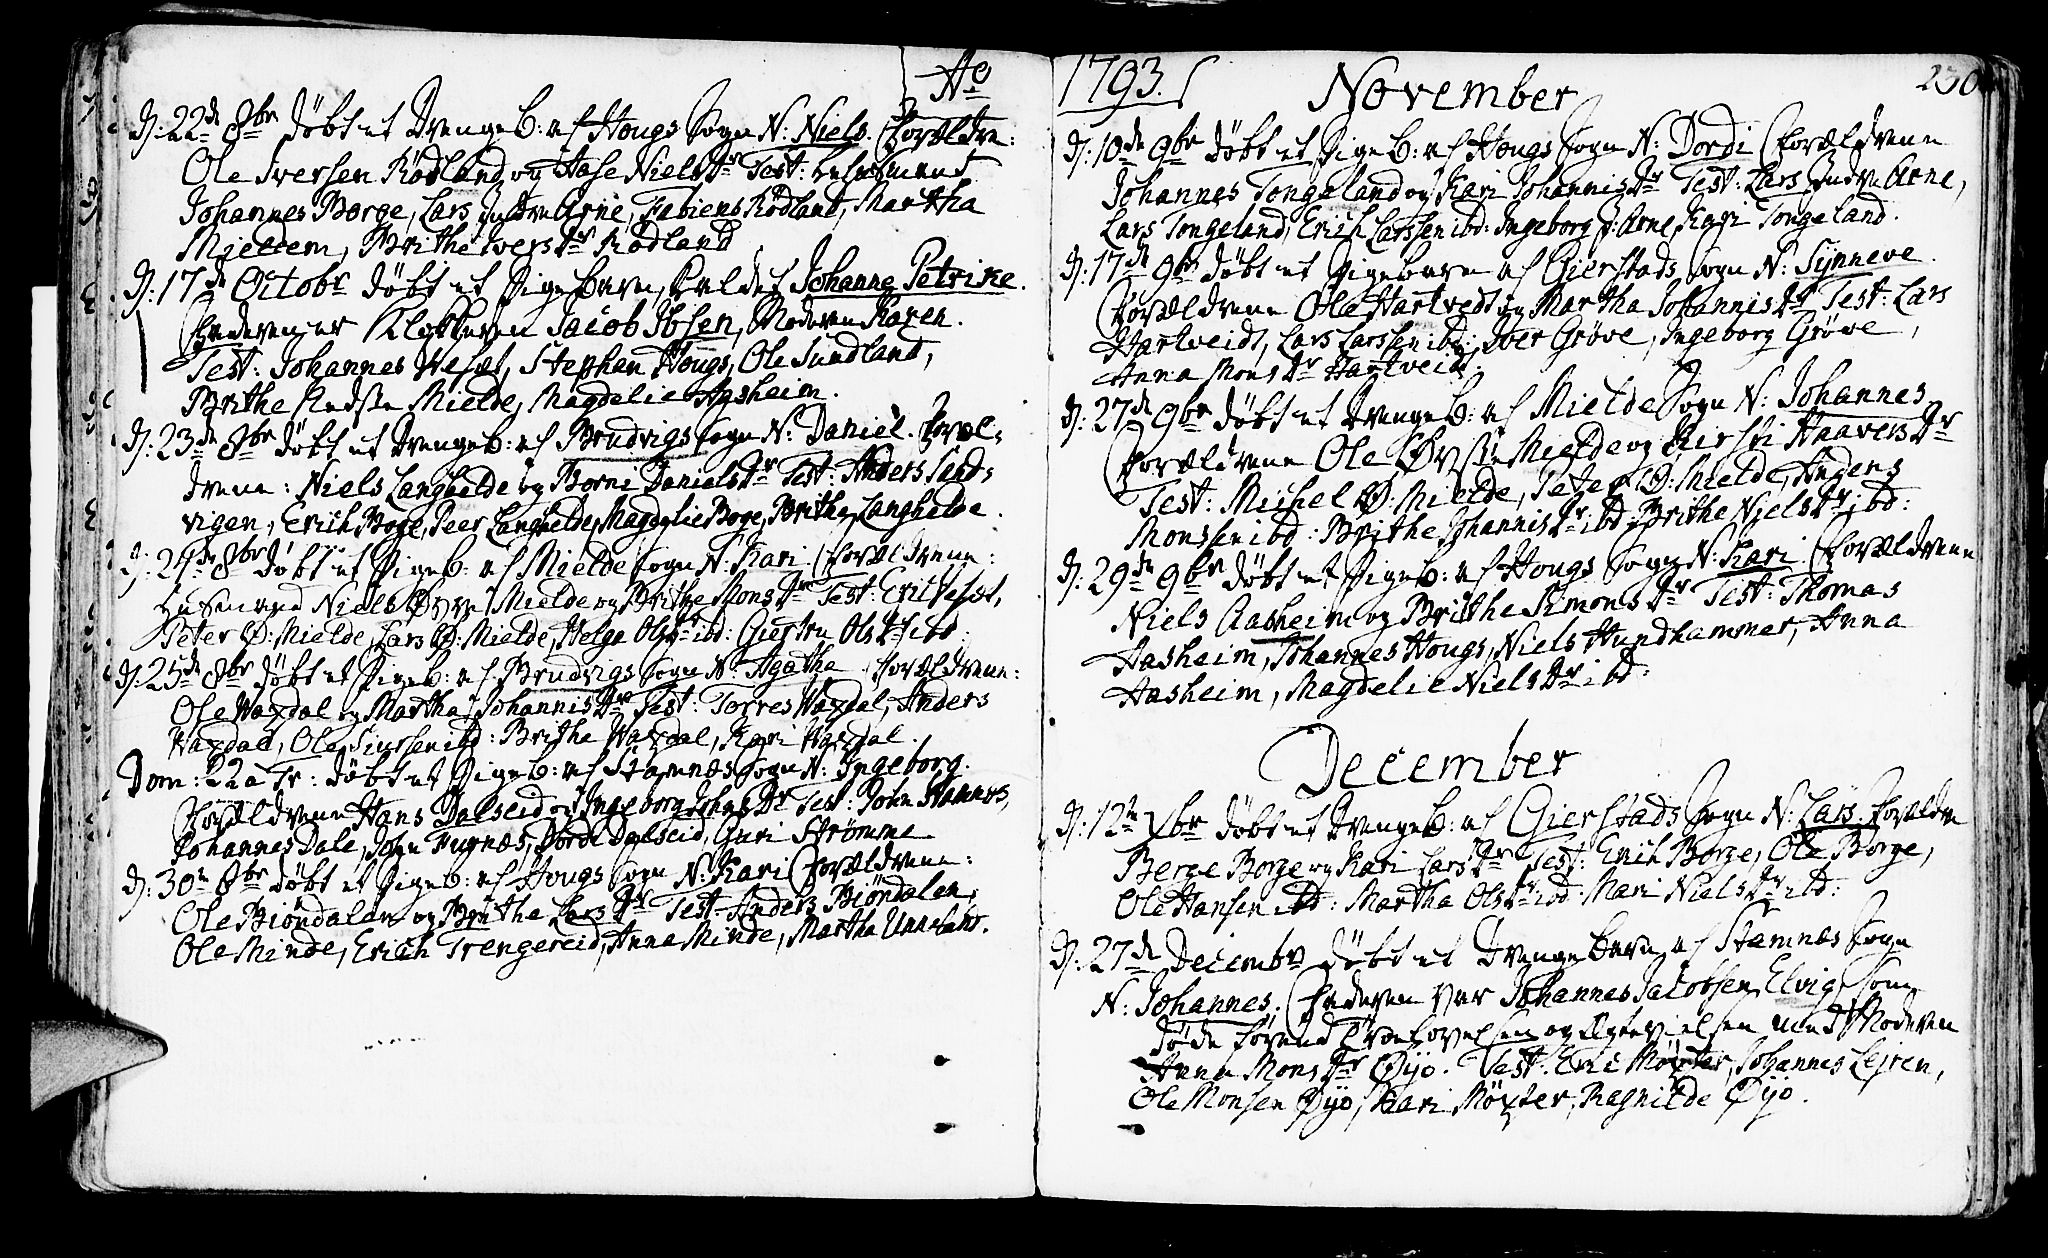 Ao
D: 22de 8br döbt et Drengeb: af Hougs Sogn N: Niels. Forældre:
Ole Iversen Rödland og Aase NielsDr Test:
Johannes Borge, Lars Indre Arne, Fabiens Rödland, Martha
Mieldem, Brithe IversDr Rödland
D: 17de Octobr döbt et Pigebarn, kaldet Johanne Petrike.
Faderen er Klokkeren Jacob Ibsen, Moderen Karen.
Test: Johannes Veset, Stephan Hougs, Ole Sundland,
Brithe Mielde, Magdelie Aasheim.
D: 23de 8br döbt et Drengeb: af Brudvigs Sogn N: Daniel. Foræl-
drene: Niels Langhelde og Borni DanielsDr Test: Anders Sand-
vigen, Erich Boge, Peer Langhelde, Magdelie Boge, Brithe Langhelde.
D: 24de 8br döbt et Pigeb: af Mielde Sogn N: Kari Forældrene:
Husmand Niels Øvre Mielde og Brithe MonsDr Test: Erich Veset,
Peter Ø: Mielde, Lars Ø: Mielde, Helga OlsDr ibd: Giertru OlsDr ibd:
D: 25de 8br döbt et Pigeb: af Brudvigs Sogn N: Agathe. Forældrene:
Ole Waxdal og Martha JohannisDr Test: Torres Waxdal, Anders
Waxdal, Ole Siursen ibd: Brithe Waxdal, Kari Waxdal.
Dom: 22 a Tr: döbt et Pigeb: af Stamnæs Sogn N: Ingeborg.
Forældrene Hans Dalseid og Ingeborg JohnsDr Test: John Stamnes,
Johannes Dale, John Fugnæs, Dorde Dalseid, Guri Strömme
D: 30te 8br döbt et Pigeb: af Hougs Sogn N: Kari Forældrene:
Ole Biöndalen og Brithe LarsDr Test Anders Biöndalen,
Ole Minde, Erich Trengereid, Anna Minde, Martha Unneland.
1793. 230
November
D: 10de 9br döbt et Pigeb: af Hougs Sogn N: Dordi Forældrene
Johannes Tongeland og Kari JohannisDr Test: Lars Indre Arne,
Lars Tongeland, Erich Larssen ibd: Ingeborg I: Arne, Kari Tongeland.
D: 17de 9br döbt et Pigebarn af Gierstads Sogn N: Synneve.
Forældrene Ole Hartvedt og Martha JohannisDr Test: Lars
Hartveidt, Lars Larssen ibd: Iver Gröve, Ingeborg Gröve,
Anna MonsDr Hartveid.
D: 27de 9br döbt et Drengeb: af Mielde Sogn N: Johannes
Forældrene Ole Øvste Mielde og Kiersti HaaversDr
Test: Michel Ø: Mielde, Peter Ø: Mielde, Anders
Monssen ibd: Brithe JohannisDr ibd: Brithe NielsDr ibd:
D: 29de 9br döbt et Pigeb: af Hougs Sogn N: Kari. Forældrene
Niels Aasheim og Brithe SimonsDr Test: Thomas
Aasheim, Johannes Hougs, Niels Hundhammer, Anna
Aasheim, Magdelie NielsDr ibd:
December
D: 12te Xbr döbt et Drengeb: af Gierstads Sogn N: Lars. Forældre
Berge Borge og Kari LarsDr Test: Erich Borge, Ole Borge,
Ole Hansen ibd: Martha OlsDr ibd: Mari NielsDr ibd:
D: 27de Decembr döbt et Drengebarn af Stamnæs Sogn
N: Johannes. Faderen var Johannes Jacobsen Elvig som
döde förend Troelovelsen og Ægtevielsen med Moderen
Anna MonsDr Øyo. Test: Eric Möxter, Johannes Lejren,
Ole Monsen Øyo, Kari Möxter, Ragnilde Øyo.